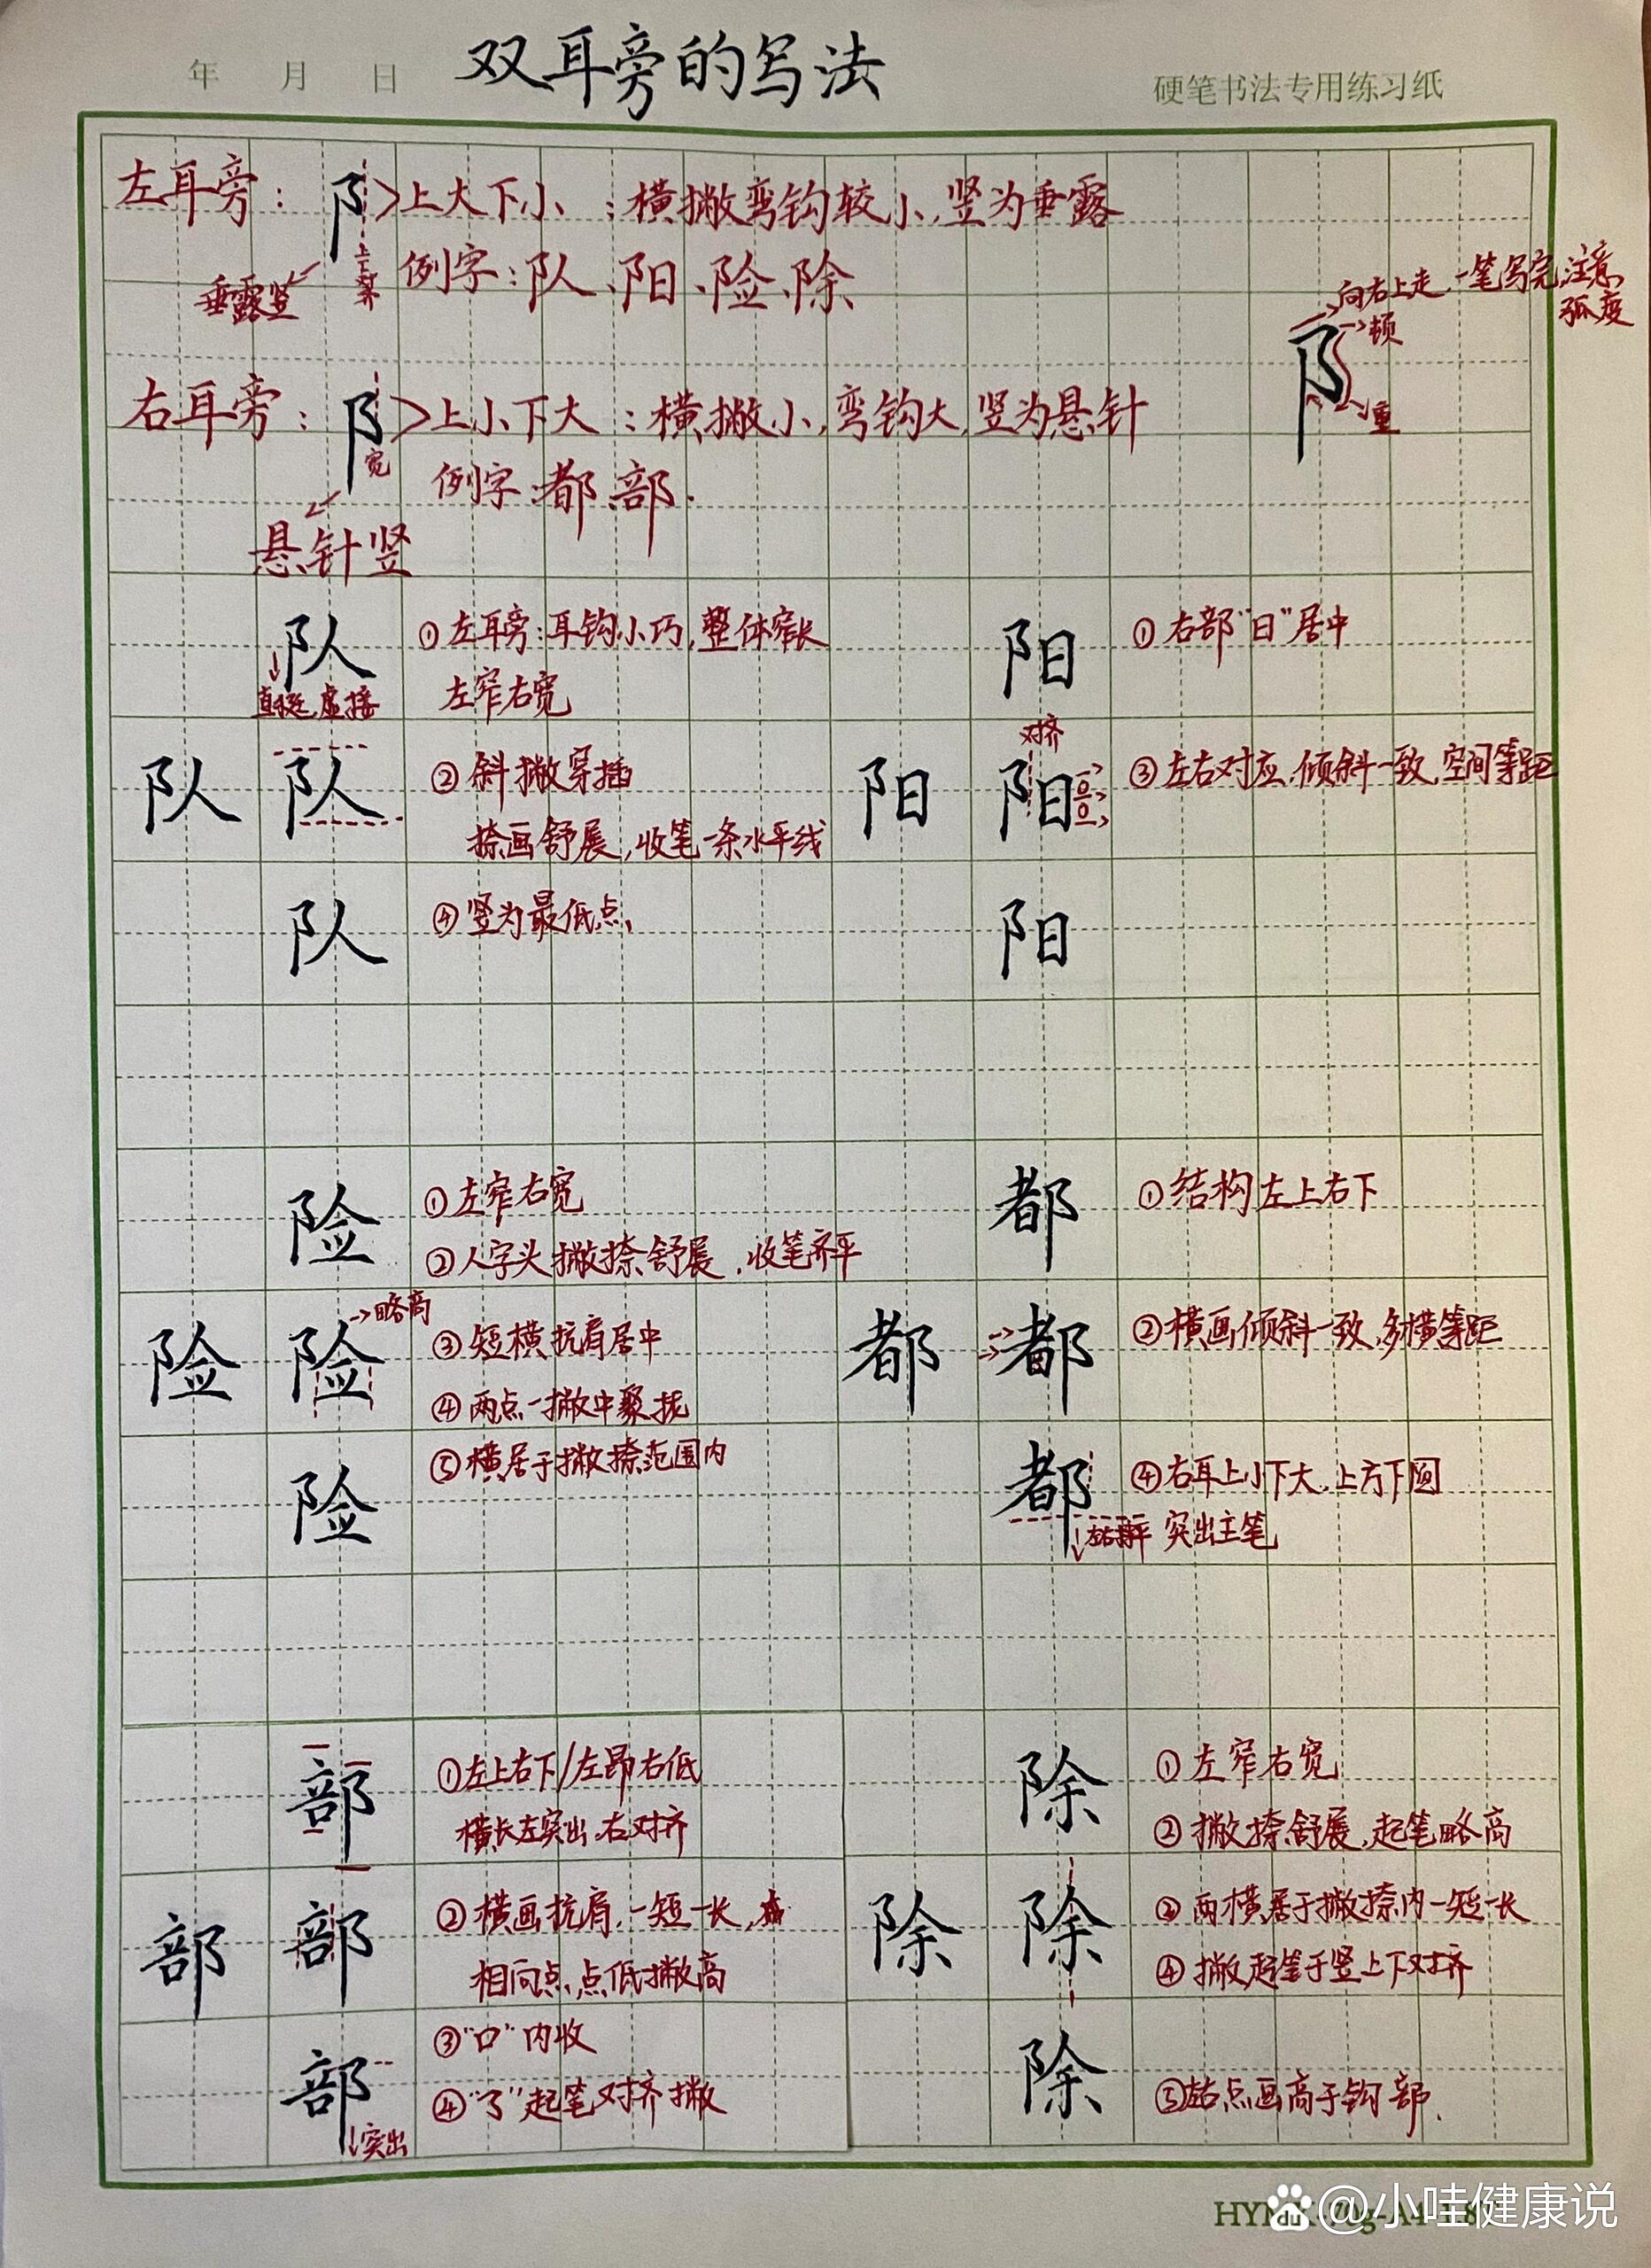 年 月 日
双耳旁的写法
硬笔书法专用练习纸
左耳旁：阝>上大下小：横撇弯钩较小，竖为垂露
垂露竖
例字：队、阳、险、除
向右上走，一笔写完，注意
弧度
顿
重
阝
右耳旁：阝>上小下大：横撇小，弯钩大，竖为悬针
宽
例字：都、部.
悬针竖
队
直挺，虚接
①左耳旁：耳钩小巧，整体窄长
左窄右宽
阳
①右部“日”居中
队 队
②斜撇穿插
捺画舒展，收笔一条水平线
对齐
阳 阳
③左右对应，倾斜一致，空间等距
队
④竖为最低点，
阳
险
①左窄右宽
②人字头撇捺舒展，收笔齐平
都
①结构左上右下
险 险
略高
③短横抗肩居中
④两点一撇中聚拢
都 都
②横画倾斜一致，多横等距
险
⑤横居于撇捺范围内
都
④右耳上小下大，上方下圆
突出主笔
部
①左上右下/左昂右低
横长左突出，右对齐
除
①左窄右宽
②撇捺舒展，起笔略高
部 部
②横画抗肩，一短一长，
相向点，点低撇高
除 除
③两横居于撇捺内一短一长
④撇起笔于竖上下对齐
部
突出
③“口”内收
④“了”起笔对齐撇
除
⑤左右点画高于钩部.
@小哇健康说